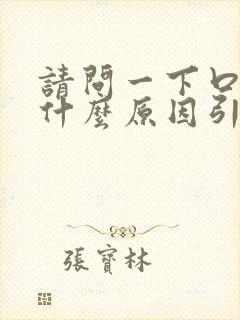 請問一下口
什麼原因引
張寶林